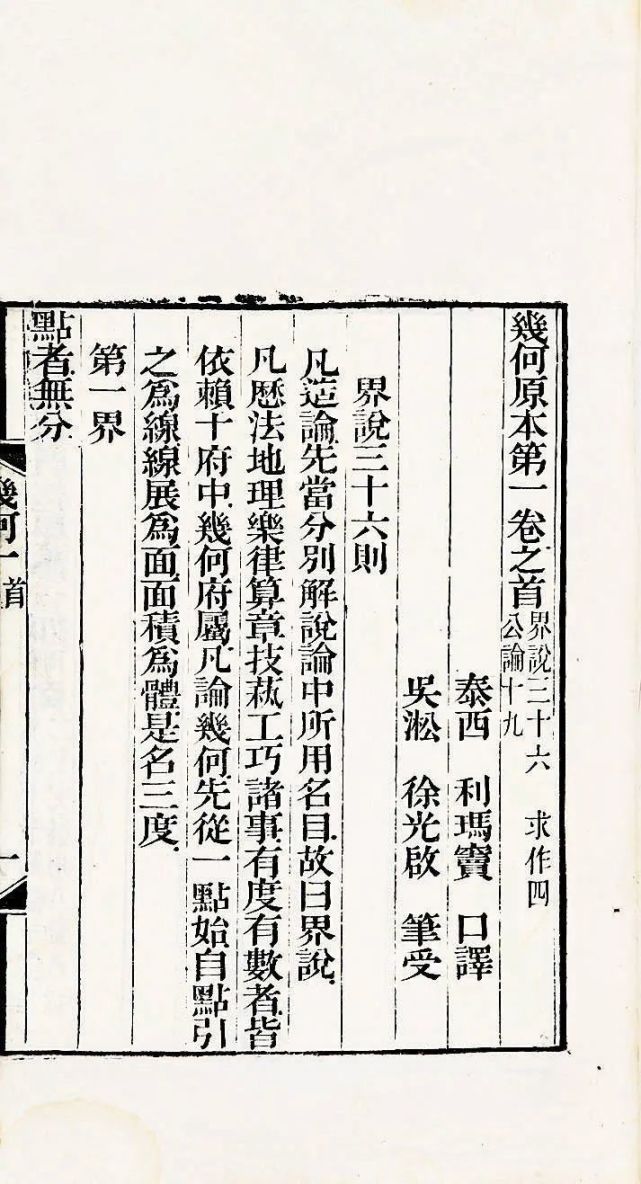 幾何原本第一卷之首 界說三十六 求作四
公論十九
泰西 利瑪竇 口譯
吳淞 徐光啟 筆受
界說三十六則
凡造論先當分別解說論中所用名目.故曰界說.
凡歷法地理樂律算章技蓺工巧諸事有度有數者.皆
依賴十府中.幾何府屬.凡論幾何.先從一點始自點引
之爲線線展爲面.面積爲體.是名三度.
第一界
點者.無分.
幾何一 首
一